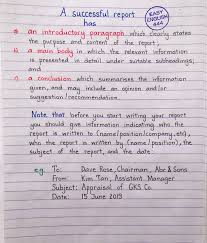 A successful report
has
EASY
ENGLISH
444
a) an introductory paragraph which clearly states
the purpose and content of the report ;
b) a main body in which the relevant information
is presented in detail under suitable subheadings;
and
c) a conclusion which summarises the information
given, and may include an opinion and/or
suggestion/recommendation.
Note that before you start writing your report
you should give information indicating who the
report is written to (name/position/company, etc),
who the report is written by (name/position), the
subject of the report, and the date:
e.g. To: Dave Rose, Chairman, Abc & Sons
From: Kim Tan, Assistant Manager
Subject: Appraisal of GKS Co.
Date: 15 June 2019